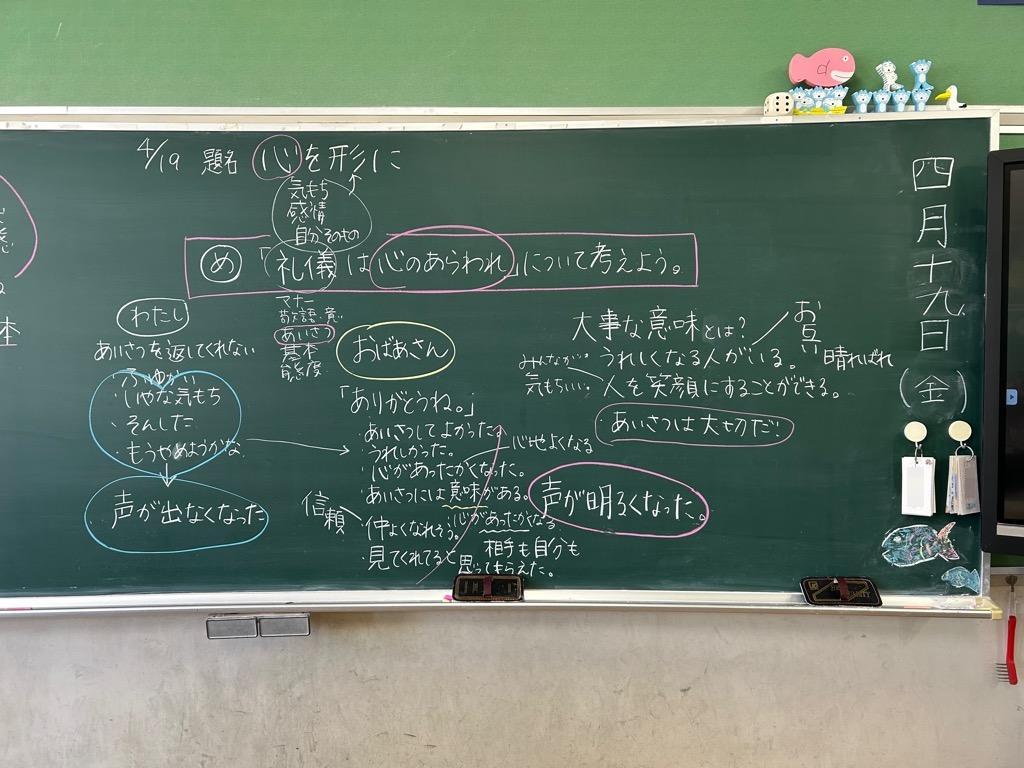 4/19 題名 心を形に
気もち
感情
自分そのもの
め 「礼儀は心のあらわれ」について考えよう。
マナー
あいさつ
基本
態度
わたし
あいさつを返してくれない
・ふゆかい
・いやな気もち
・そんした
・もうやめようかな
声が出なくなった
おばあさん
「ありがとうね。」
・あいさつしてよかった。
・うれしかった。
・心があったかくなった。
・あいさつには意味がある。
信頼
・仲よくなれそう。
・見てくれてると思ってもらえた。
心地よくなる
心があったかくなる
相手も自分も
声が明るくなった。
大事な意味とは?
お互い
みんなが
気もちいい。
・うれしくなる人がいる。
晴ればれ
・人を笑顔にすることができる。
・あいさつは大切だ!
四月十九日(金)
本